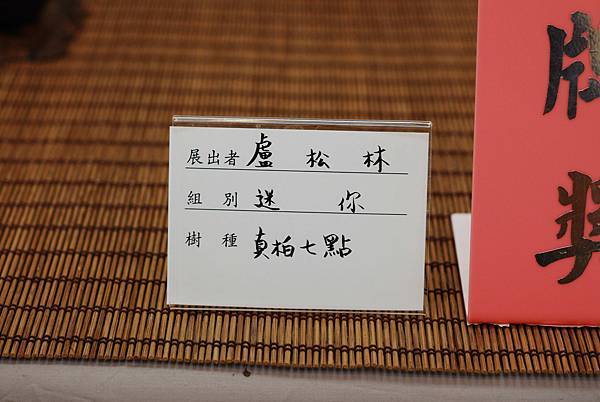 展出者 盧松林
組別 送你
樹種 真柏七點
獎